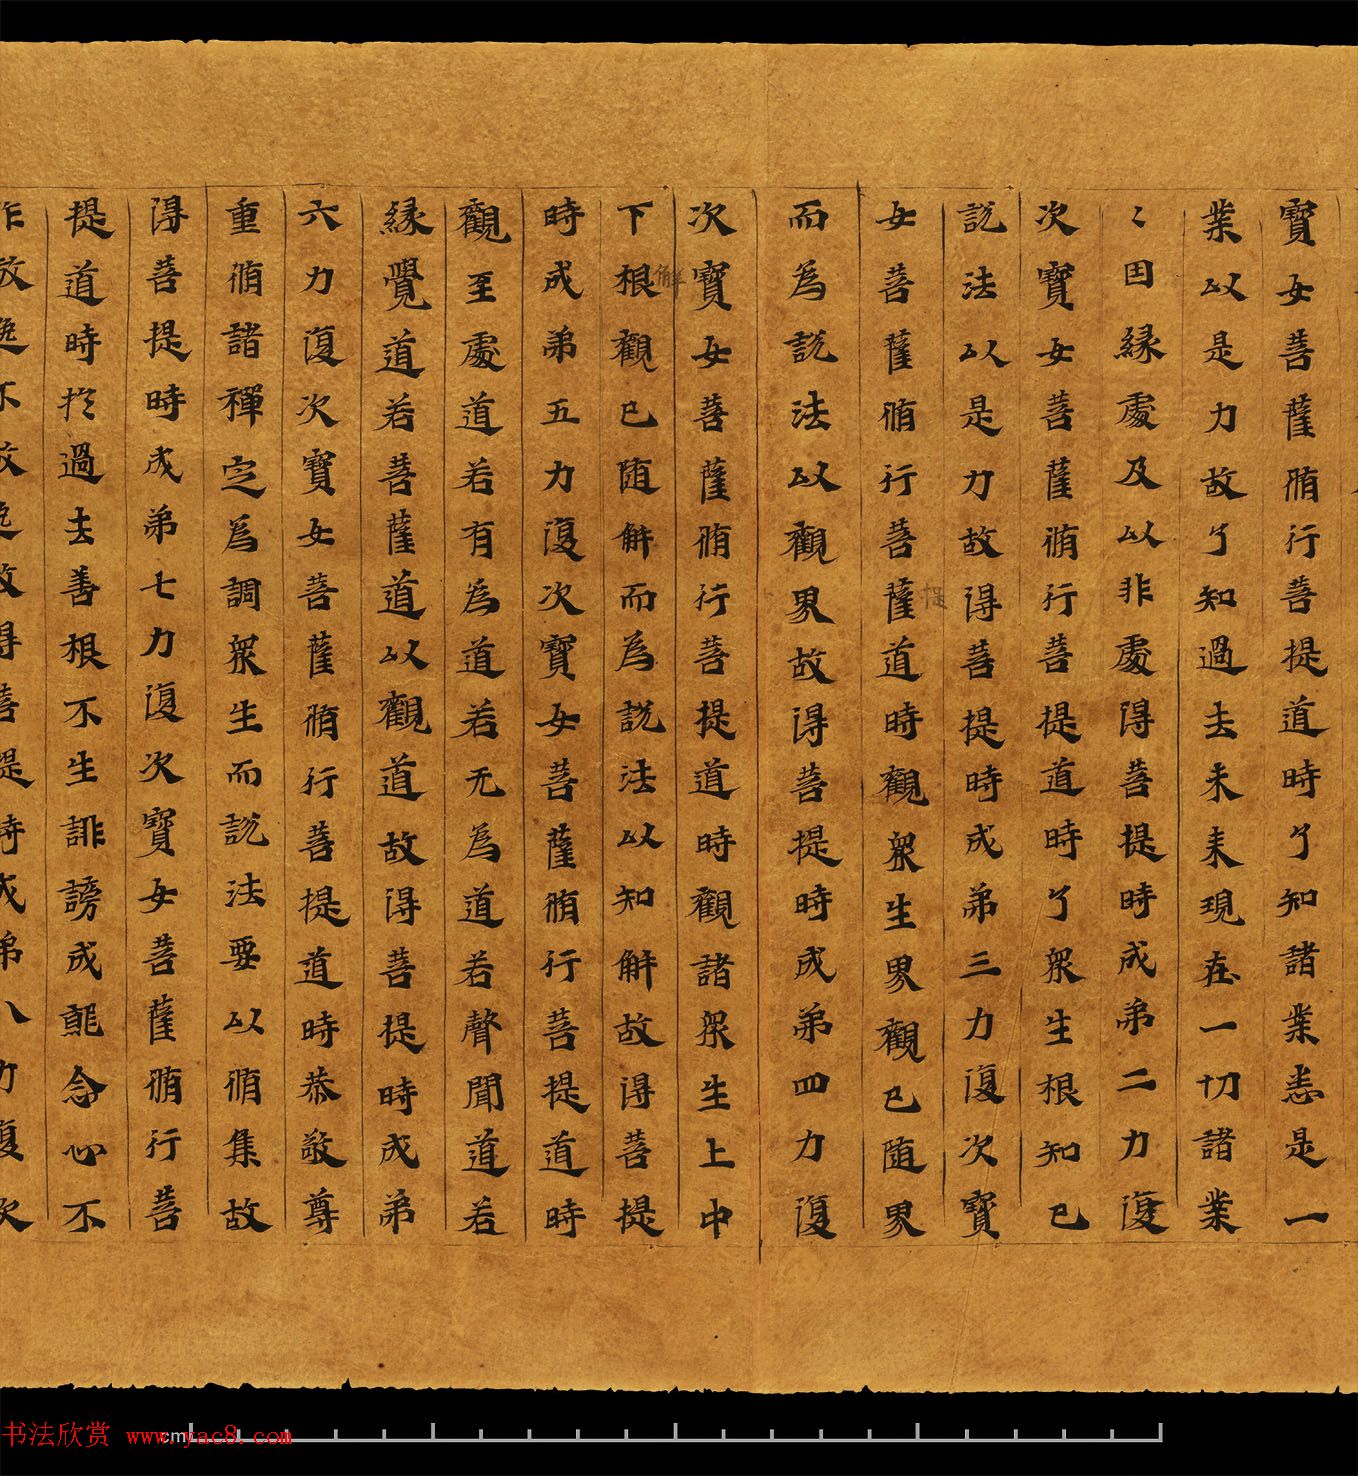 寶女菩薩脩行菩提道時了知諸業悉是一
業以是力故了知過去未来現在一切諸業
〻因縁處及以非處得菩提時成弟二力復
次寶女菩薩脩行菩提道時了衆生根知已
說法以是力故得菩提時成弟三力復次寶
女菩薩脩行菩薩道時觀衆生界觀已随界
提
而為說法以觀界故得菩提時成弟四力復
次寶女菩薩脩行菩提道時觀諸衆生上中
下根觀已随解而為說法以知解故得菩提
解
時成弟五力復次寶女菩薩脩行菩提道時
觀至處道若有為道若无為道若聲聞道若
縁覺道若菩薩道以觀道故得菩提時成弟
六力復次寶女菩薩脩行菩提道時恭敬尊
重脩諸禪定為調衆生而說法要以脩集故
得菩提時成弟七力復次寶女菩薩脩行菩
提道時扵過去善根不生誹謗成就念心不
作放逸不放逸故得菩提時成弟八力復次
书法欣赏 www.yac8.com
cm